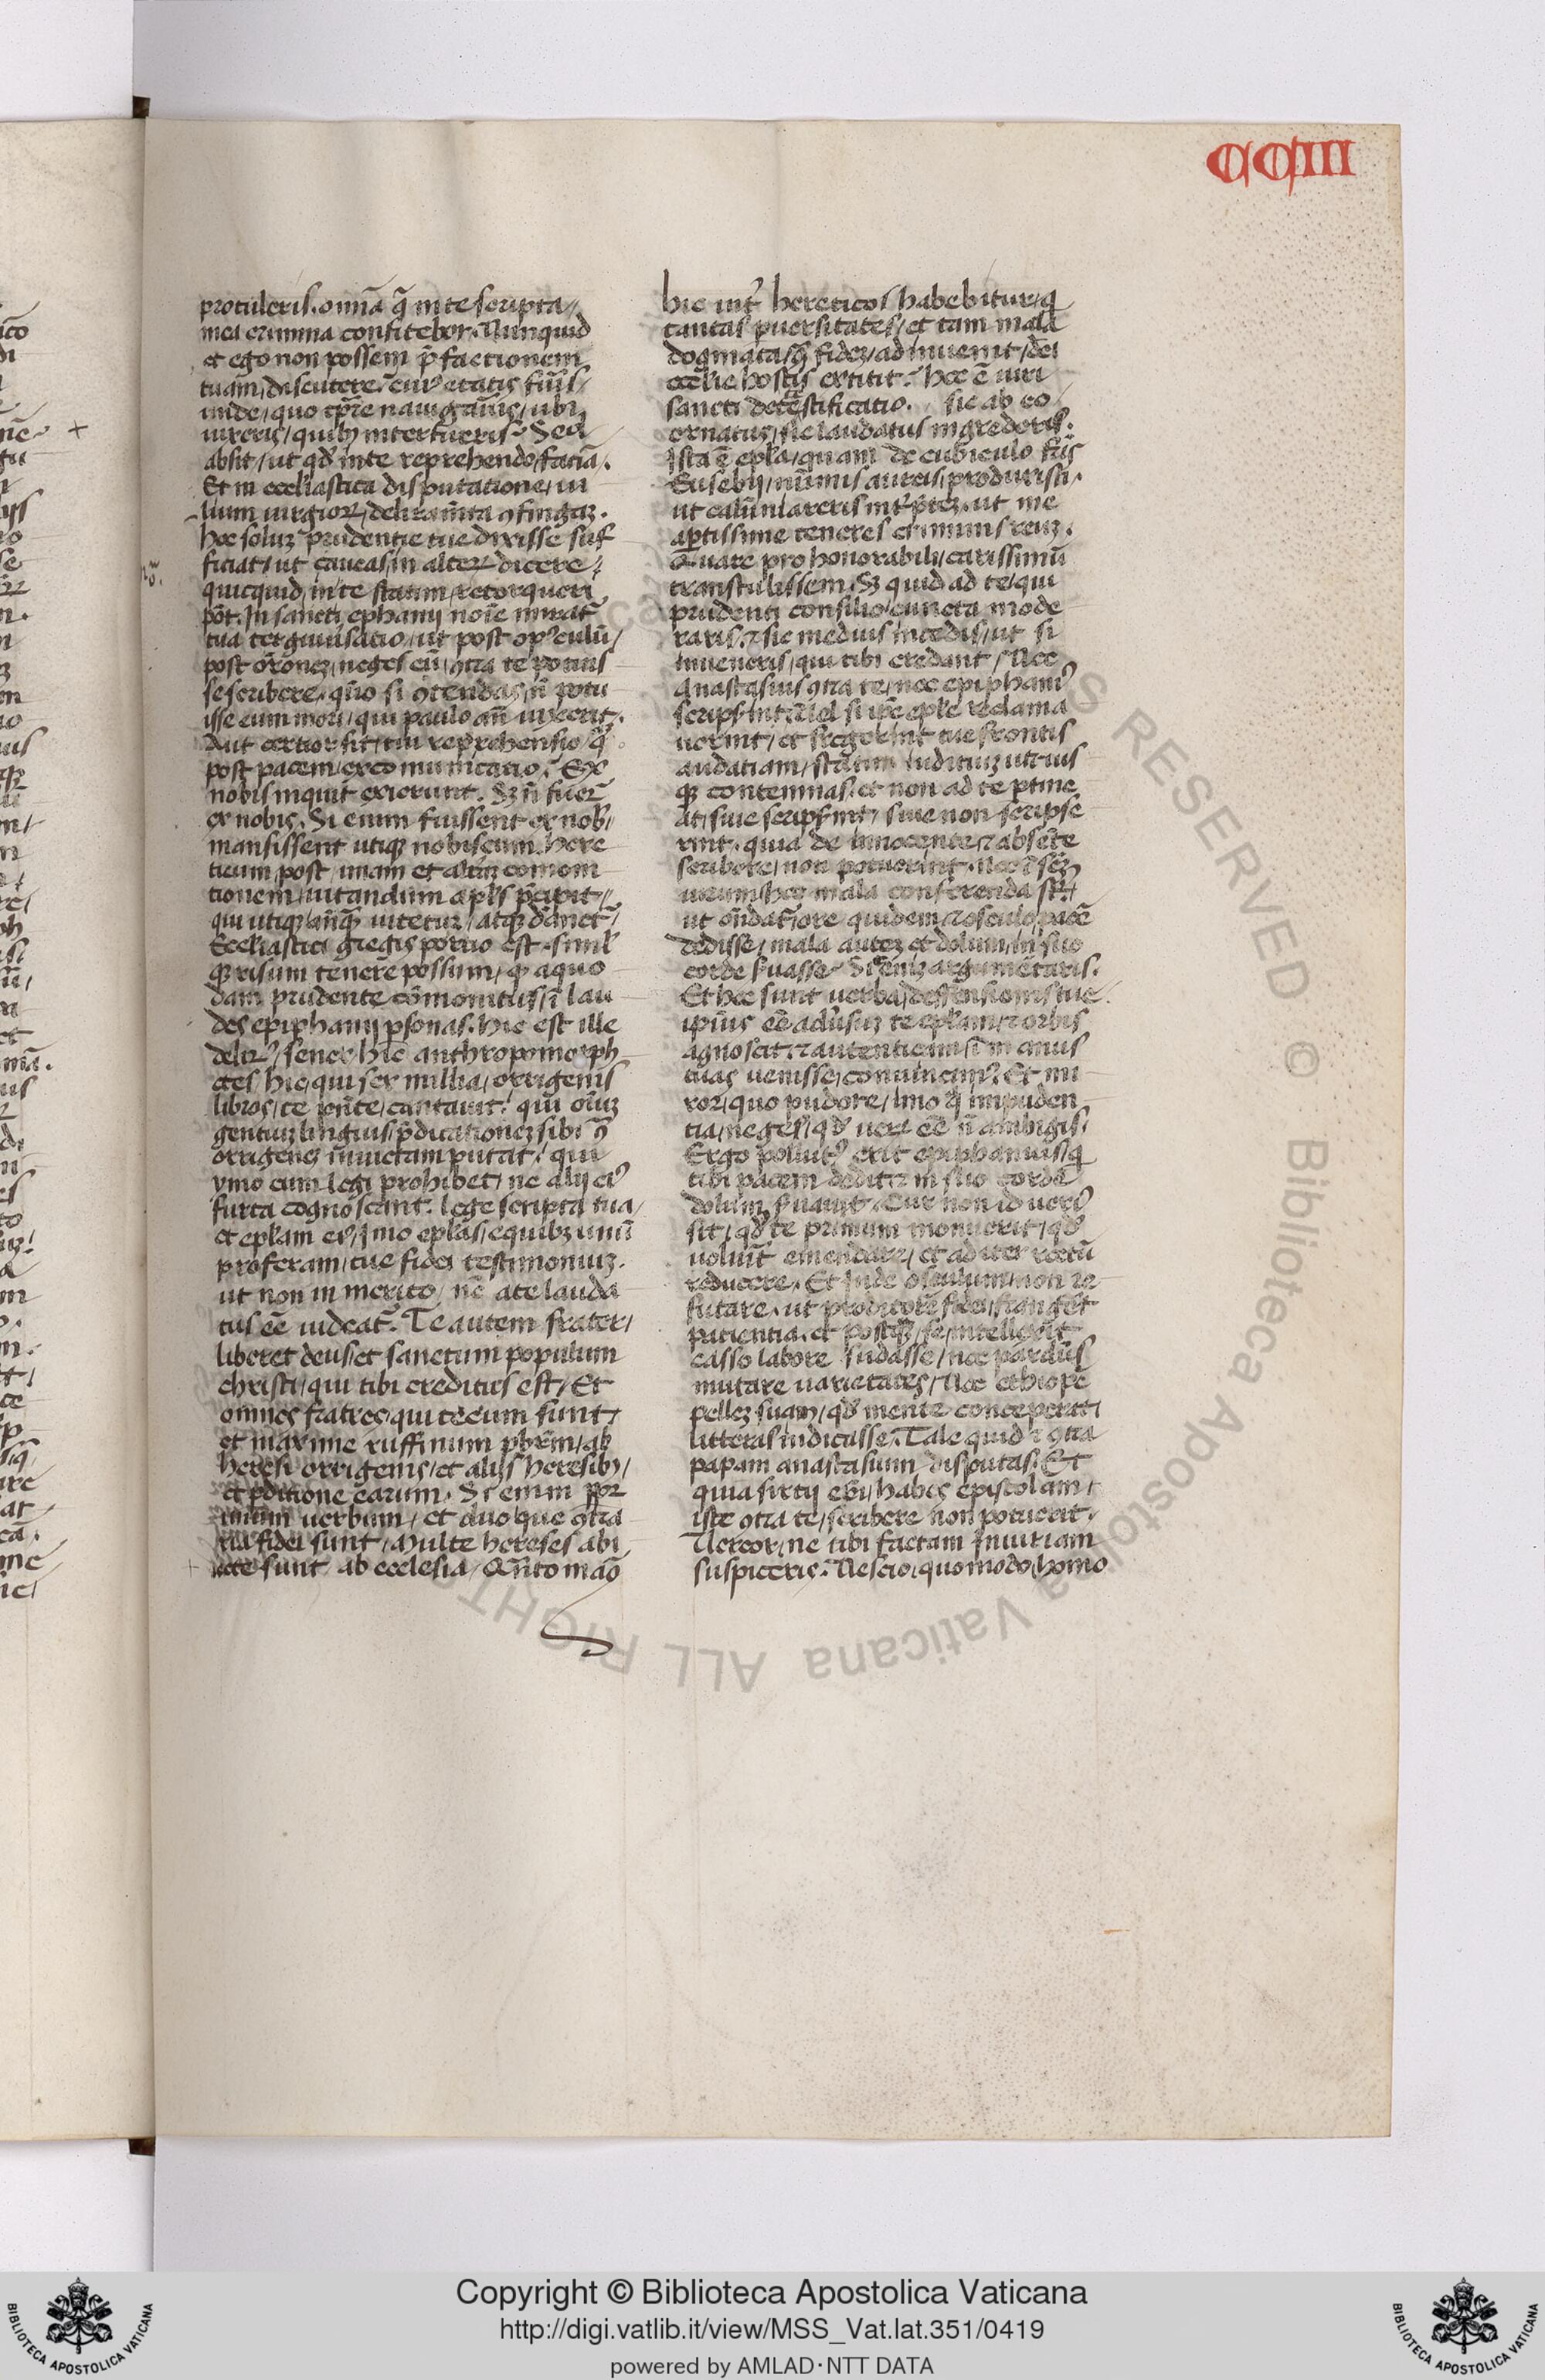 CCIII
protuleris. om̄ia q̄ in te scripta/
mea crimina confitebor. Nunquid
et ego non possem p̄ factionem
tuam discutere. cuiꝰ etatis fuȋs/
unde/ quo tp̄re nauigauȋs/ ubi
uixeris/ quibꝫ interfueris? Sed
absit/ ut qd̓ in te reprehendo/ faciā.
Et in eccl̓iastica disputatione/ in
lium uirgior̄/ deliram̄ta ꝯfingaꝫ.
hec soluꝫ prudentie tue dixisse suf
ficiat/ ut caueas/ in alterꝫ dicere/
quicquid/ in te statim/ retorqueri
pōt. In sancti ephanij noīe mirat̄
tua tergiuisatio/ ut post opꝰculū/
post or̄onez/ neges eū/ ꝯtra te potuis
se scribere. quo si ꝯtendas/ n̄ potu
isse eum mori/ qui paulo an̄ uixerit.
Aut certior sit/ tui reprehensio/ q̄
post pacem/ excomunicatio. Ex
nobis inquit exierunt. Sꝫ n̄ fuer̄
ex nobis. Si enim fuissent ex nob̄/
mansissent utiqꝫ nobiscum. here
ticum/ post/ unam et alt̄aꝫ comoni
tionem/ uitandum apl̓s p̄cipit/
qui utiqꝫ/ an̄q̄ uitetur/ atqꝫ dānet̄/
Eccl̓iastici gregis portio est. simul̓
qꝫ risum tenere possum/ qꝫ a quo
dam prudente cōmonitus/ ī lau
des epiphanij ꝑsonas. hic est ille
delirꝰ/ senex hic anthropomorph
ites/ hic qui sex millia/ origenis
libros/ te pn̄te/ cantauit. qui om̄iuꝫ
gentiuꝫ linguis/ p̄dicationez sibi ꝯ
origenez iniunctam putat. qui
ymo eum legi prohibet/ ne alij eiꝰ
furta cognoscant. lege scripta tua/
et ep̄lam eiꝰ/ imo ep̄las/ e quibꝫ unā
proferam/ tue fidei testimoniuꝫ.
ut non inmerito/ nc̄ a te lauda
tus eē uideat̄. Te autem frater/
liberet deus/ et sanctum populum
christi/ qui tibi creditus est/ Et
omnes fratres/ qui tecum sunt/
et maxime ruffinum pbr̄m/ ab
heresi origenis/ et alijs heresibꝫ/
et ꝑditione earum. Si enim ꝓpt̄
unum uerbum/ et duo que ꝯtra
ria fidei sunt/ Multe hereses abi
ecte sunt/ ab ecclesia/ Qn̄to magō
hic int̄ hereticos habebitur/ q̄
tantas ꝑuersitates/ et tam mala
dogmata/ ꝯ̄ fidez/ adinuenit/ dei
eccl̓ie hostis extitit. Hec ē uiri
sancti detestificatio. sic ab eo
ornatus/ sic laudatus ingrederis.
Ista ē ep̄la/ quam de cubiculo frīs
Eusebij/ nūmis aureis/ produxisti.
ut calūniareris int̓p̄tez. ut me
aꝑtissime teneres criminis reuꝫ.
Quare pro honorabili/ carissimū
transtulissem. Sꝫ quid ad te/ qui
prudenti consilio/ cuncta mode
raris. ⁊ sic medius incedis/ ut si
inueneris/ qui tibi credant/ Nec
Anastasius ꝯtra te/ nec epiphaniꝰ
scripserint. Vel si ip̄e ep̄le reclama
uerint/ et fregerint tue frontis
audatiam/ statim iudiciuꝫ utrius
qꝫ contemnas/ et non ad te ꝑtine
at/ siue scripserint/ siue non scripse
rint. quia de innocente/ ⁊ absēte
scribere/ non potuerint. Nec ī sc̄m
uirum/ hec mala conferenda st̄/
ut on̄dat̄/ ore quidem/ ⁊ osculo/ pacē
dedisse/ mala autez et dolum/ in suo
corde ẜuasse. Sic eniꝫ argumētaris.
Et hec sunt uerba/ deffensionis tue.
ipsius eē aduersuꝫ te ep̄lam/ ⁊ orbis
agnoscit/ ⁊ autenticam/ ī manus
tuas uenisse/ conuincimꝰ. Et mi
ror/ quo pudore/ imo q̄ impuden
tia/ neges/ qd̓ uerꝫ eē n̄ ambigis.
Ergo pollutꝰ erit epiphanius/ q̄
tibi pacem dedit/ ⁊ in suo corde
dolum ẜuauit. Cur non id uerꝰ
sit/ qd̓ te primum monuerit/ qd̓
uoluīt emendare/ et ad iter rectū
reducere. Et Iude osculum/ non re
futare. ut proditorē fidei/ frangēt
patientia. et postq̄/ se intellexit
casso labore sudasse/ nec pardus
mutare uarietates/ Nec ethiops
pellez suam/ qd̓ mente conceperat/
litteris indicasse. Tale quid ⁊ ꝯtra
papam anastasium disputas. Et
quia siricij ep̄i/ habes epistolam/
iste ꝯtra te/ scribere non potuerit.
Vereor/ ne tibi factam iniuriam
suspiceris. Nescio/ quomodo/ homo
Copyright © Biblioteca Apostolica Vaticana
http://digi.vatlib.it/view/MSS_Vat.lat.351/0419
powered by AMLAD·NTT DATA